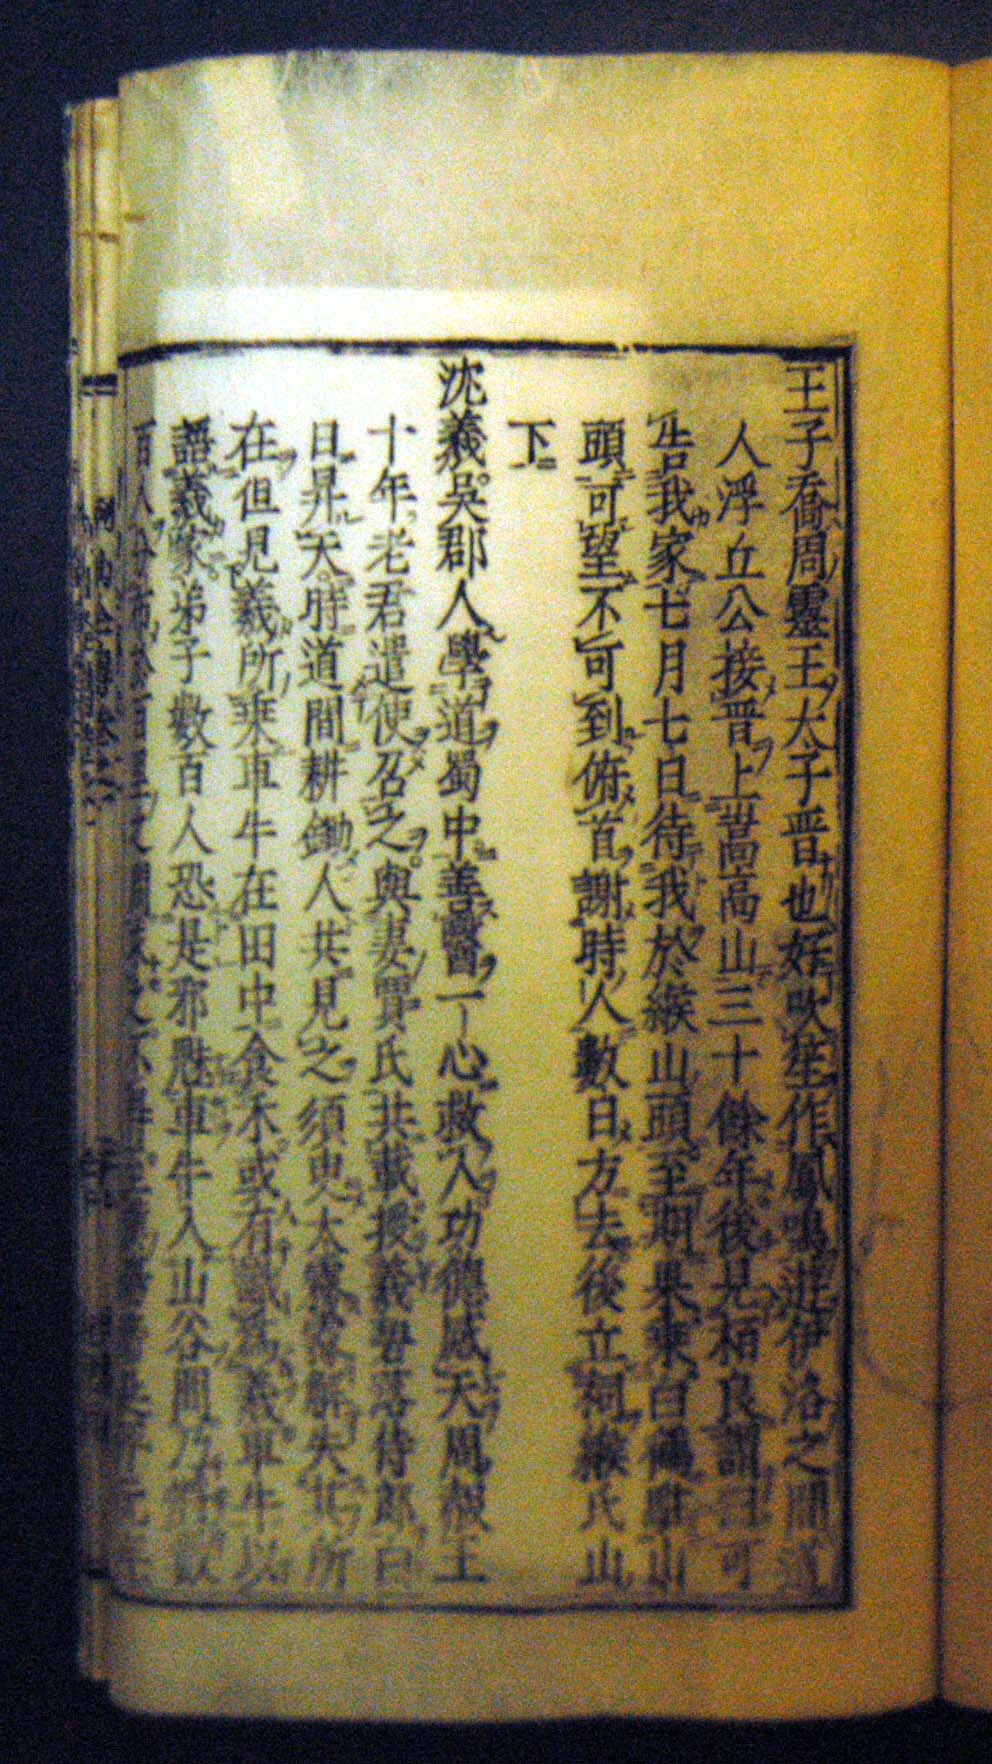 王子喬周靈王太子晋也好吹笙作鳳鳴遊伊洛之間道
人浮丘公接晋上嵩高山三十餘年後見栢良謂曰可
告我家七月七日待我於緱山頭至期果乗白鶴駐山
頭可望不可到俯首謝時人數日方去後立祠緱氏山
下
沈羲吳郡人學道蜀中善醫一心救人功德感天周赧王
十年老君遣使召之與妻賈氏共載授羲碧落侍郎白
日昇天時道間耕鋤人共見之須臾大霧霧解失其所
在但見羲所乗車牛在田中食禾或有識為羲車牛以
語羲家弟子數百人恐是邪魅車牛入山谷間乃分
百人分布於百里之間求之不得
列仙全傳卷